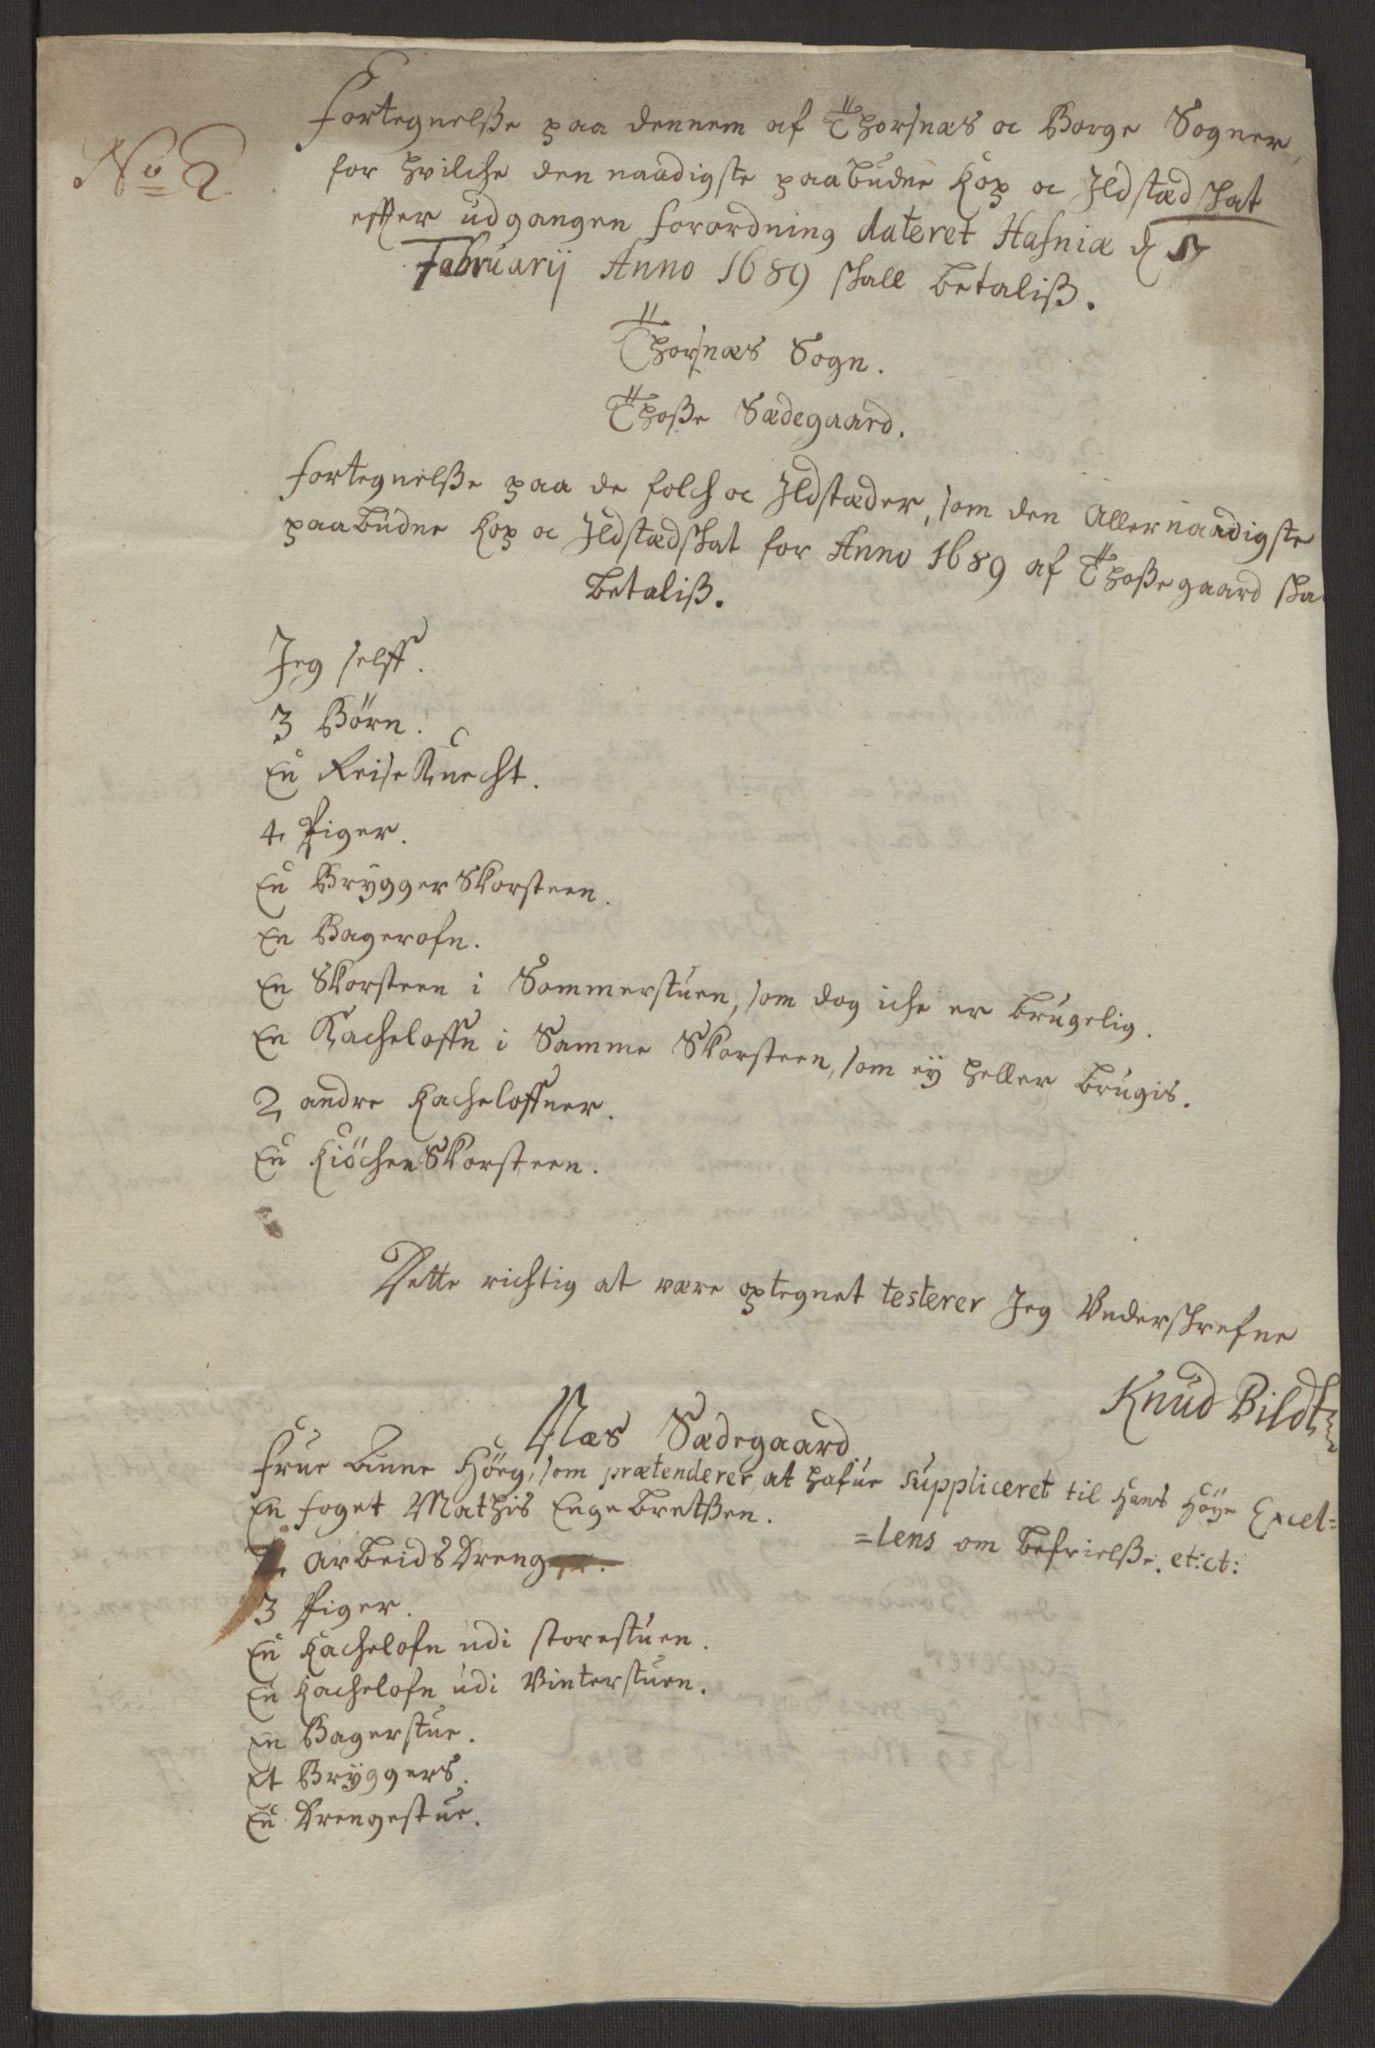 No 2.
Fortegnelsse paa dennem af Thorsnæs oc Borge Sogner,
for hvilche den naadigste paabudne Kop oc Ildstæd schat
effter udgangen forordning dateret Hafniæ d
Februarij Anno 1689 schall betaliss.
Thorsnæs Sogn.
Thosse Sædegaard.
Fortegnelsse paa de folch oc Ildstæder, som den Allernaadigste
paabudne Kop oc Ildstædschat for Anno 1689 af Thossegaard scha
betaliss.
Jeg selff.
3 Börn.
En Reise Knecht.
4 Piger.
En Brygger Skorsteen.
En Bagerofn.
En Skorsteen i Sommerstuen, som dog iche er brugelig.
En Kacheloffn i Samme Skorsteen, som ey heller brugis.
2 andre Kacheloffner.
En Kiöchen Skorsteen.
Dette richtig at være optegnet testerer Jeg Underschrefne
Knud Bildt
Næs Sædegaard
Frue Anne Höeg, som prætenderer at hafue suppliceret til Hans Höye Excel=
En foget Mathis Engebretssen.
=lens om befrielsse. et:ct:
arbeids Dreng
3 Piger.
En Kachelofn udi storestuen.
En Kachelofn udi Vinterstuen.
En Bagerstue.
Et Bryggers.
En Drengestue.